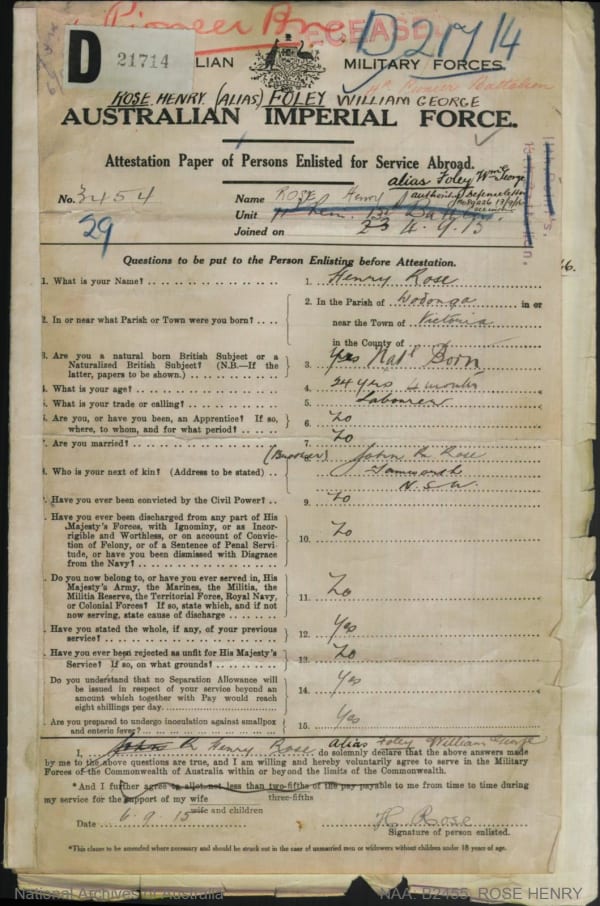 Pioneer
DECEASED
D21714
D
21714
AUSTRALIAN MILITARY FORCES.
4th Pioneer Battalion
ROSE HENRY (ALIAS) FOLEY WILLIAM GEORGE
AUSTRALIAN IMPERIAL FORCE.
Attestation Paper of Persons Enlisted for Service Abroad.
alias Foley Wm George
No. 3454
Name ROSE Henry
authority Defence
Unit
29
Joined on 4.9.15
Questions to be put to the Person Enlisting before Attestation.
1. What is your Name? 1. Henry Rose
2. In or near what Parish or Town were you born? 2. In the Parish of Wodonga in or
near the Town of Victoria
in the County of
3. Are you a natural born British Subject or a
Naturalized British Subject? (N.B.—If the
latter, papers to be shown.) 3. Yes Natl Born
4. What is your age? 4. 24 yrs 4 months
5. What is your trade or calling? 5. Labourer
6. Are you, or have you been, an Apprentice? If so,
where, to whom, and for what period? 6. No
7. Are you married? 7. No
8. Who is your next of kin? (Address to be stated) (Brother) 8. John R Rose
Tamworth
N.S.W.
9. Have you ever been convicted by the Civil Power? 9. No
Have you ever been discharged from any part of His
Majesty's Forces, with Ignominy, or as Incor-
rigible and Worthless, or on account of Convic-
tion of Felony, or of a Sentence of Penal Servi-
tude, or have you been dismissed with Disgrace
from the Navy? 10. No
Do you now belong to, or have you ever served in, His
Majesty's Army, the Marines, the Militia, the
Militia Reserve, the Territorial Force, Royal Navy,
or Colonial Forces? If so, state which, and if not
now serving, state cause of discharge 11. No
Have you stated the whole, if any, of your previous
service? 12. Yes
Have you ever been rejected as unfit for His Majesty's
Service? If so, on what grounds? 13. No
Do you understand that no Separation Allowance will
be issued in respect of your service beyond an
amount which together with Pay would reach
eight shillings per day. 14. Yes
Are you prepared to undergo inoculation against smallpox
and enteric fever? 15. Yes
I, John R Henry Rose alias Foley William George do solemnly declare that the above answers made
by me to the above questions are true, and I am willing and hereby voluntarily agree to serve in the Military
Forces of the Commonwealth of Australia within or beyond the limits of the Commonwealth.
*And I further agree to allot not less than two-fifths of the pay payable to me from time to time during
three-fifths
my service for the support of my wife
wife and children
Date 6.9.15 H Rose
Signature of person enlisted.
*This clause to be amended where necessary and should be struck out in the case of unmarried men or widowers without children under 18 years of age.
National Archives of Australia
NAA: B2455, ROSE HENRY